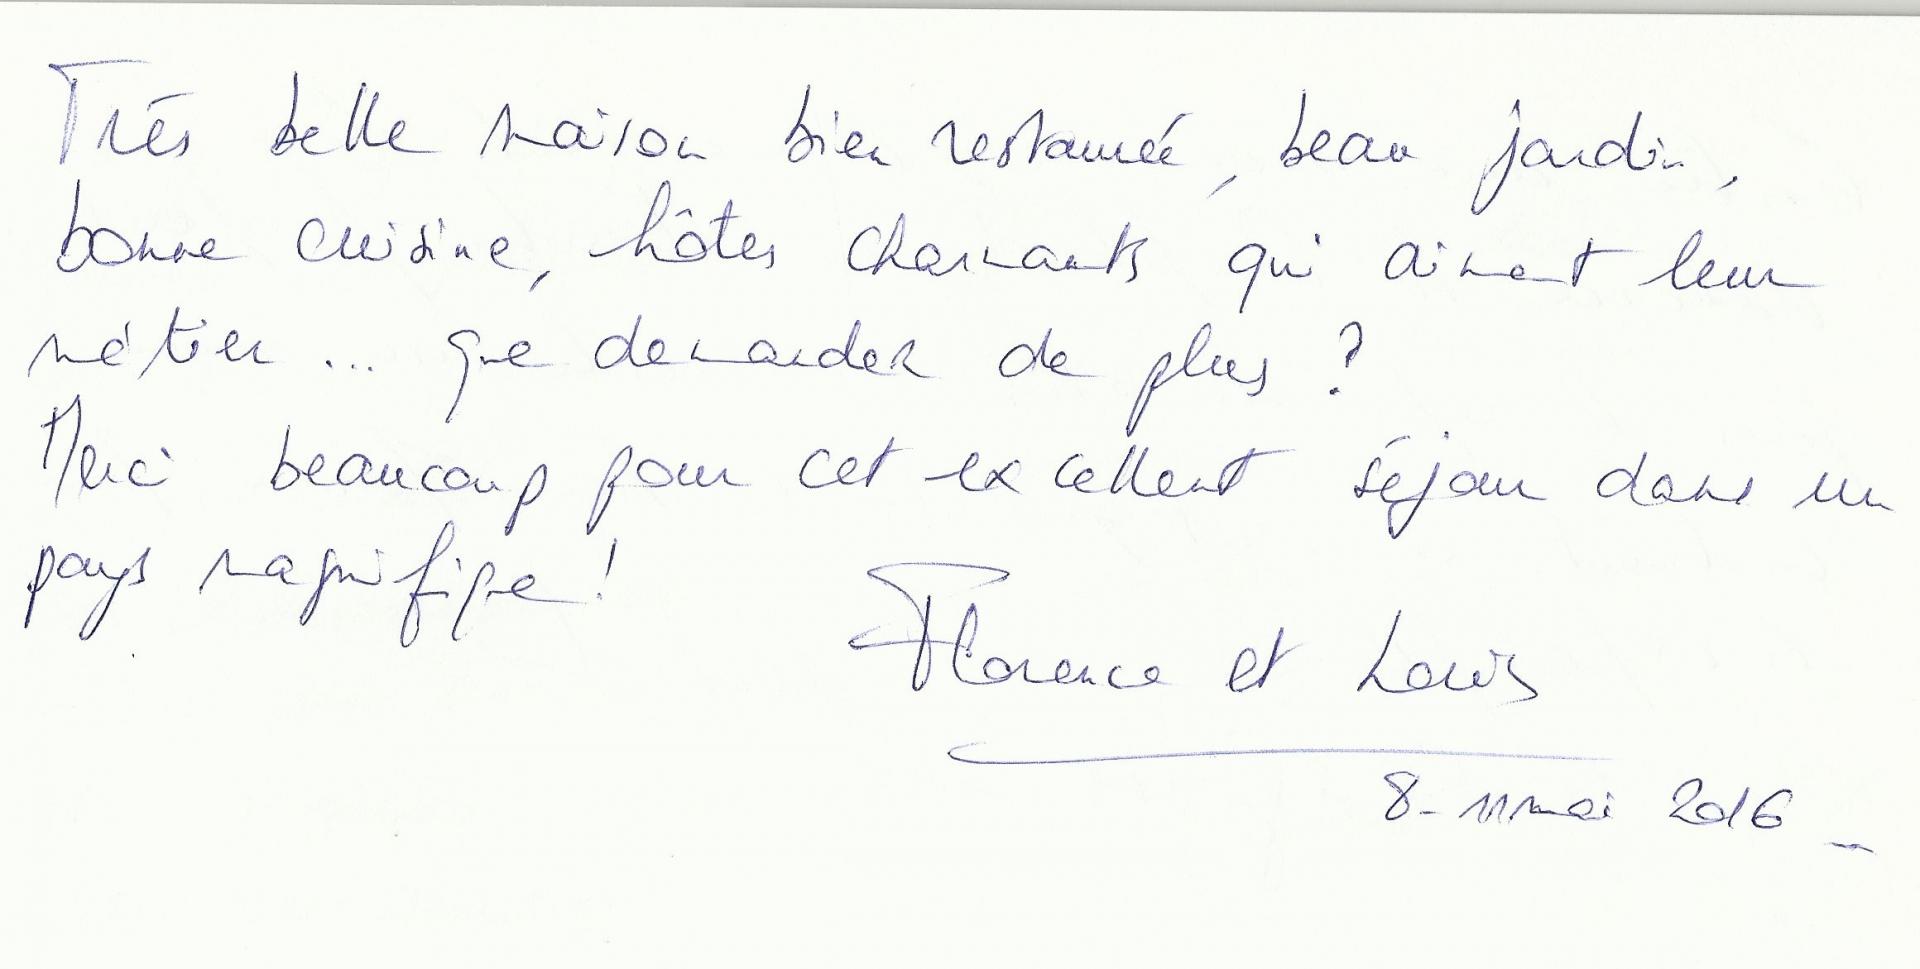 Très belle maison bien restaurée, beau jardin,
bonne cuisine, hôtes charmants qui aiment leur
métier ... que demander de plus ?
Merci beaucoup pour cet excellent séjour dans un
pays magnifique !
Florence et Louis
8-11 mai 2016